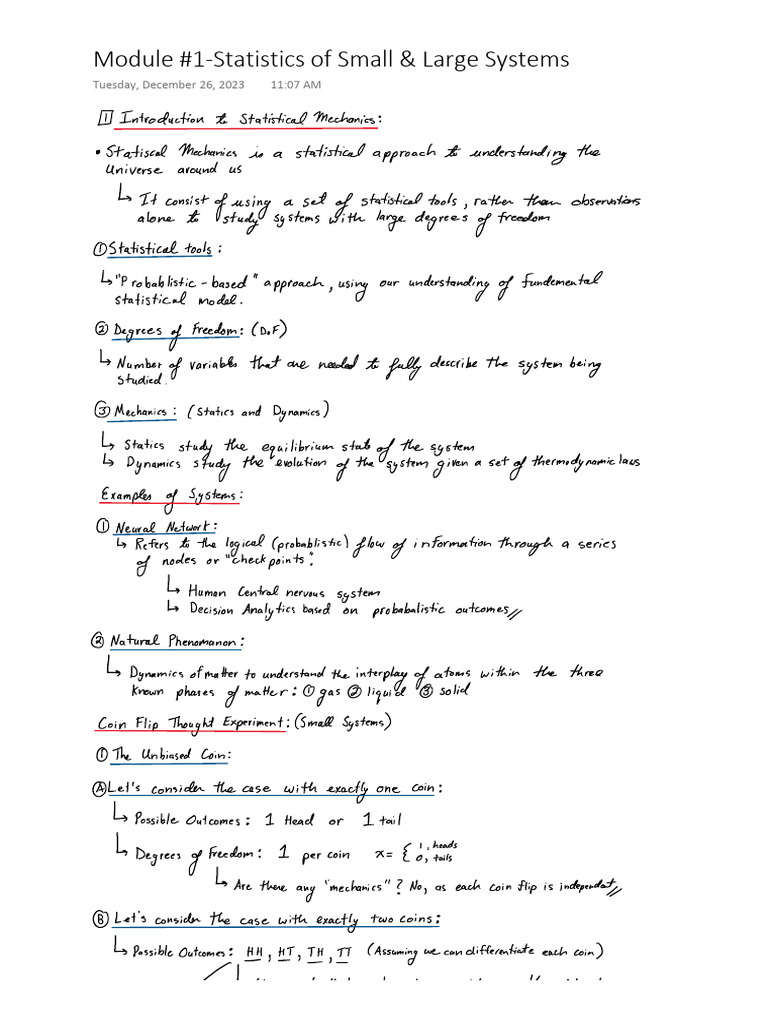 Module #1-Statistics of Small & Large Systems
Tuesday, December 26, 2023 11:07 AM
1 Introduction to Statistical Mechanics:
• Statiscal Mechanics is a statistical approach to understanding the
Universe around us
↳ It consist of using a set of statistical tools, rather than observations
alone to study systems with large degrees of freedom
① Statistical tools:
↳ "Probablistic-based" approach, using our understanding of fundemental
statistical model.
② Degrees of Freedom: (D.F)
↳ Number of variables that are needed to fully describe the system being
studied.
③ Mechanics: (Statics and Dynamics)
↳ Statics study the equilibrium state of the system
↳ Dynamics study the evolution of the system given a set of thermodynamic laws
Examples of Systems:
① Neural Network:
↳ Refers to the logical (probablistic) flow of information through a series
of nodes or "checkpoints".
↳ Human Central nervous system
↳ Decision Analytics based on probabalistic outcomes//
② Natural Phenomanon:
↳ Dynamics of matter to understand the interplay of atoms within the three
known phases of matter: ① gas ② liquid ③ solid
Coin Flip Thought Experiment: (Small Systems)
① The Unbiased Coin:
Ⓐ Let's consider the case with exactly one coin:
↳ Possible Outcomes: 1 Head or 1 tail
↳ Degrees of Freedom: 1 per coin x= { 1, heads
0, tails
↳ Are there any "mechanics"? No, as each coin flip is independat//
Ⓑ Let's consider the case with exactly two coins:
↳ Possible Outcomes: HH, HT, TH, TT (Assuming we can differentiate each coin)